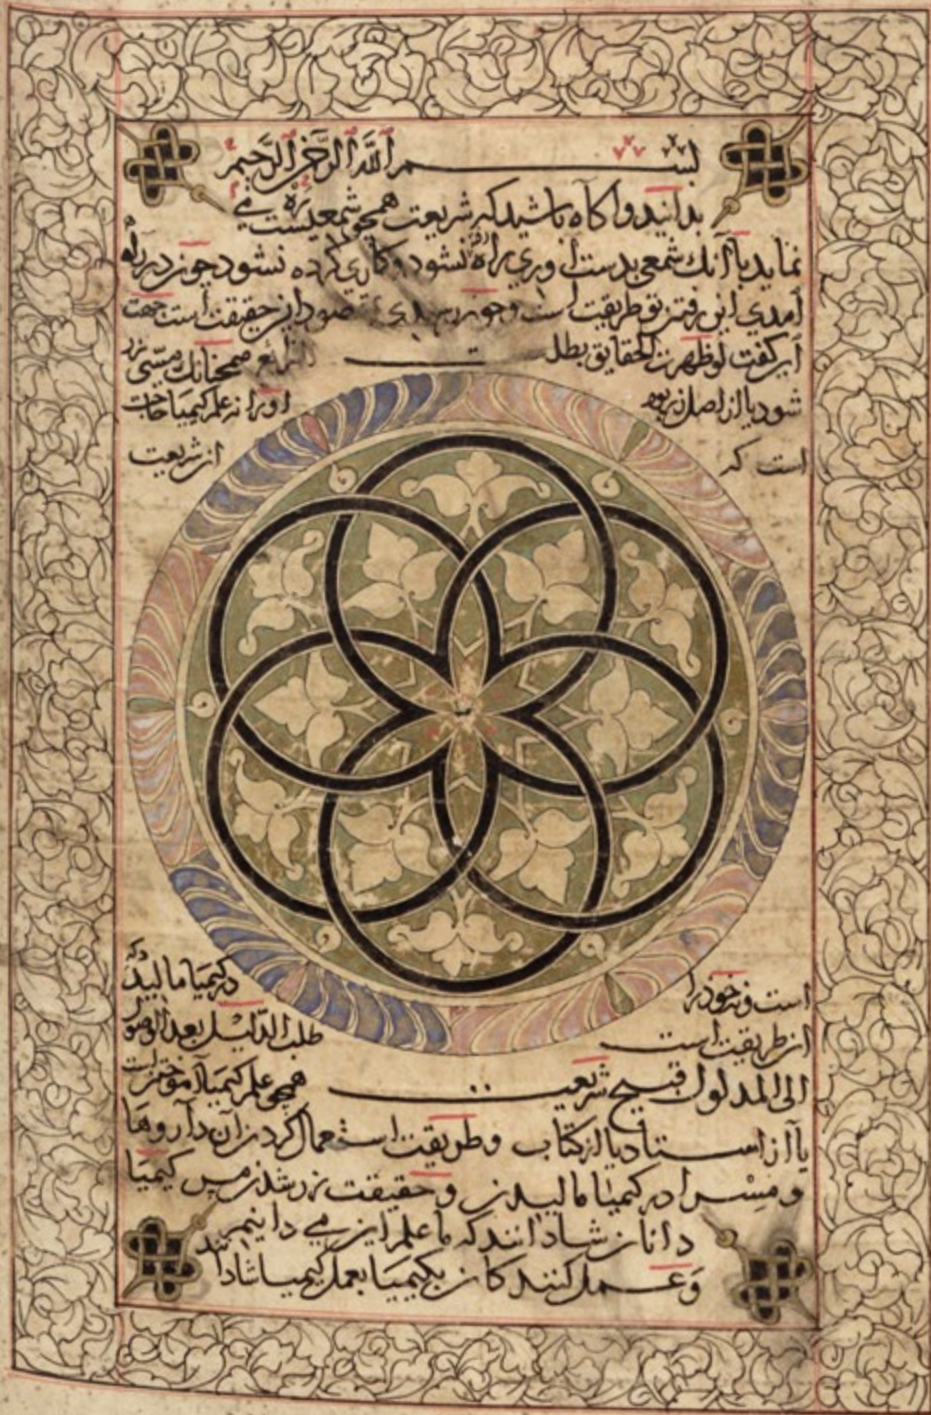 بســـم الله الرحمن الرحیم
بدانید و آگاه باشید که شریعت همچو شمعیست ره می
نماید یا آنک شمعی بدست آوری راه نشود و کاری کرده نشود چون در راه
آمدی این رفتن تو طریقت است و چون رسیدی صود این حقیقت است جهت
این گفت لو ظهرت الحقایق بطلـــت الشرایع همچنانک مسی زر
شود یا از اصل زر بود او را نه علم کیمیا حاجت
است که از شریعت
است و نه خود را در کیمیا مالید که
از طریقت است طلب الدلیل بعد الوصول
الی المدلول قبیح شریعـــت همچو علم کیمیا آموختن است
یا از استاد یا از کتاب و طریقت استعمال کردن آن داروها
و مس را در کیمیا مالیدن و حقیقت زر شدن مس کیمیا
دانان شادانند که ما علم این می دانیم
و عمل کنندکان بکیمیا بعمل کیمیا شادانند